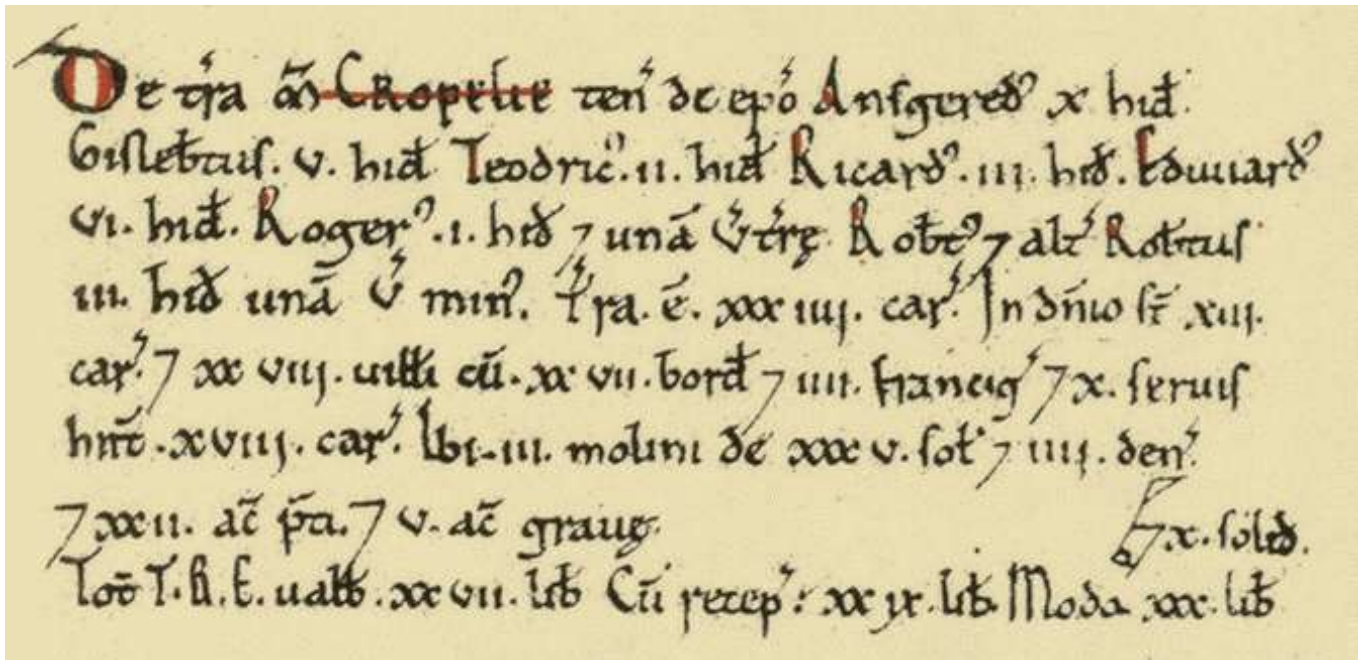 De tr̃a m̃ CROPELIE teñ de ep̃o Ansgered᾽ x hiđ.
Gislebt̃us. v. hiđ Teodric᾽. ii. hiđ Ricard᾽. iii. hiđ. Eduuard᾽
vi. hiđ. Roger᾽. i. hiđ ⁊ unā v̓ tr̃ę. Robt᾽ ⁊ alt̓ Robt̃us
iii. hiđ unā v̓ min᾽. Tr̃a. ē. xxxiiij. car̓. In dñio st̃ xiii.
car̓. ⁊ xxviij. uilłi cū. xxvii. borđ ⁊ iiii. francig̓ ⁊ x. seruis
hñt. xviij. car̓. Ibi. iii. molini de xxxv. soł ⁊ iiij. den̓.
⁊ xxii. ac̃ p̃ti. ⁊ v. ac̃ grauę.
⁊ x. soliđ.
Tot̃ T. R. E. ualb̃. xxvii. lib̃ Cū recep̓: xxix. lib̃. Modo xxx. lib̃